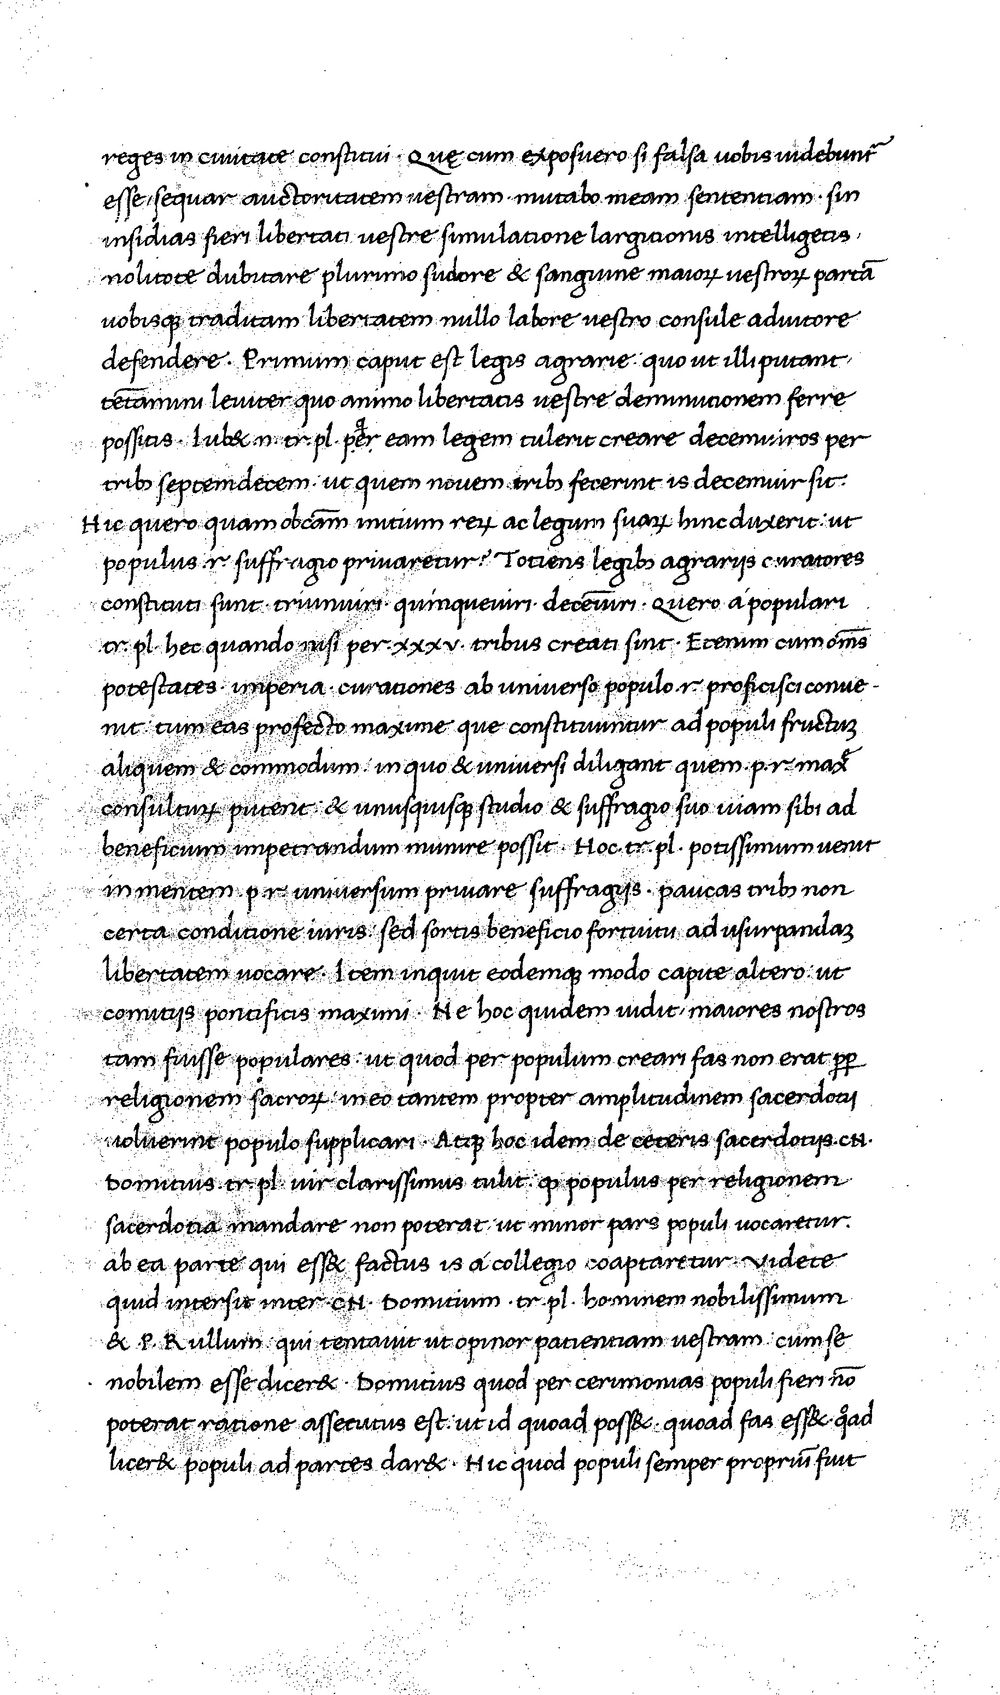 reges in ciuitate constitui · Quę cum exposuero si falsa uobis uidebunt̃
esse, sequar auctoritatem uestram · mutabo meam sententiam · sin
insidias fieri libertati uestre simulatione largitionis intelligetis,
nolitote dubitare plurimo sudore & sanguine maioꝝ uestroꝝ partā
uobisqꝫ traditam libertatem nullo labore uestro consule adiutore
defendere · Primum caput est legis agrarie: quo ut illi putant,
tētamini leuiter quo animo libertatis uestre deminutionem ferre
possitis · Iub& n. tr. pl. per eam legem tulerit creare decemuiros per
tribꝫ septemdecem · ut quem nouem tribꝫ fecerint is decemuir sit.
Hic quero quam ob cām initium reꝝ ac legum suaꝝ hinc duxerit: ut
populus .r. suffragio priuaretur? Totiens legibꝫ agrarijs curatores
constituti sunt · triumuiri · quinqueuiri · decēuiri · Quero á populari
tr. pl. hec quando nisi per .xxxv. tribus creati sint · Etenim cum om̄s
potestates · imperia · curationes ab uniuerso populo .r. proficisci conue-
nit: tum eas profecto maxime que constituuntur ad populi fructuꝫ
aliquem & commodum: in quo & uniuersi diligant quem .p.r. max̄
consultuꝝ putent: & unusquisqꝫ studio & suffragio suo uiam sibi ad
beneficium impetrandum munire possit · Hoc .tr. pl. potissimum uenit
in mentem .p.r. uniuersum priuare suffragijs · paucas tribꝫ non
certa conditione iuris: sed sortis beneficio fortuitu ad usurpandaꝫ
libertatem uocare · Item inquit eodemqꝫ modo capite altero: ut
comitijs pontificis maximi · Ne hoc quidem uidit, maiores nostros
tam fuisse populares: ut quod per populum creari fas non erat ꝓꝑ
religionem sacroꝝ: in eo tamen propter amplitudinem sacerdotij
uoluerint populo supplicari · Atqꝫ hoc idem de ceteris sacerdotijs .CN.
Domitius .tr. pl. uir clarissimus tulit: ꝙ populus per religionem
sacerdotia mandare non poterat: ut minor pars populi uocaretur.
ab ea parte qui ess& factus is á collegio coaptaretur · Videte
quid intersit inter .CN. Domitium .tr. pl. hominem nobilissimum
& .P. Rullum: qui tentauit ut opinor patientiam uestram: cum se
nobilem esse dicer& · Domitius quod per cerimonias populi fieri nō
poterat ratione assecutus est: ut id quoad poss& · quoad fas ess& · qͦad
licer& populi ad partes dar& · Hic quod populi semper propriū fuit